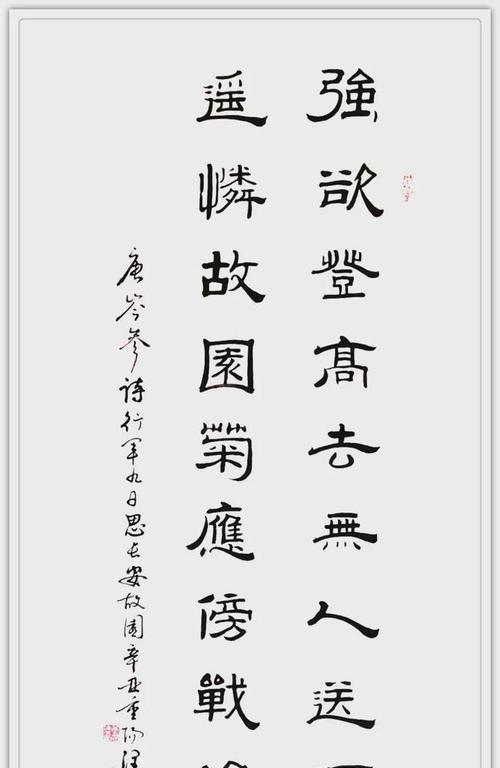 強欲登高去無人送
遥憐故園菊應傍戰
唐岑參詩行軍九日思長安故園辛丑重陽